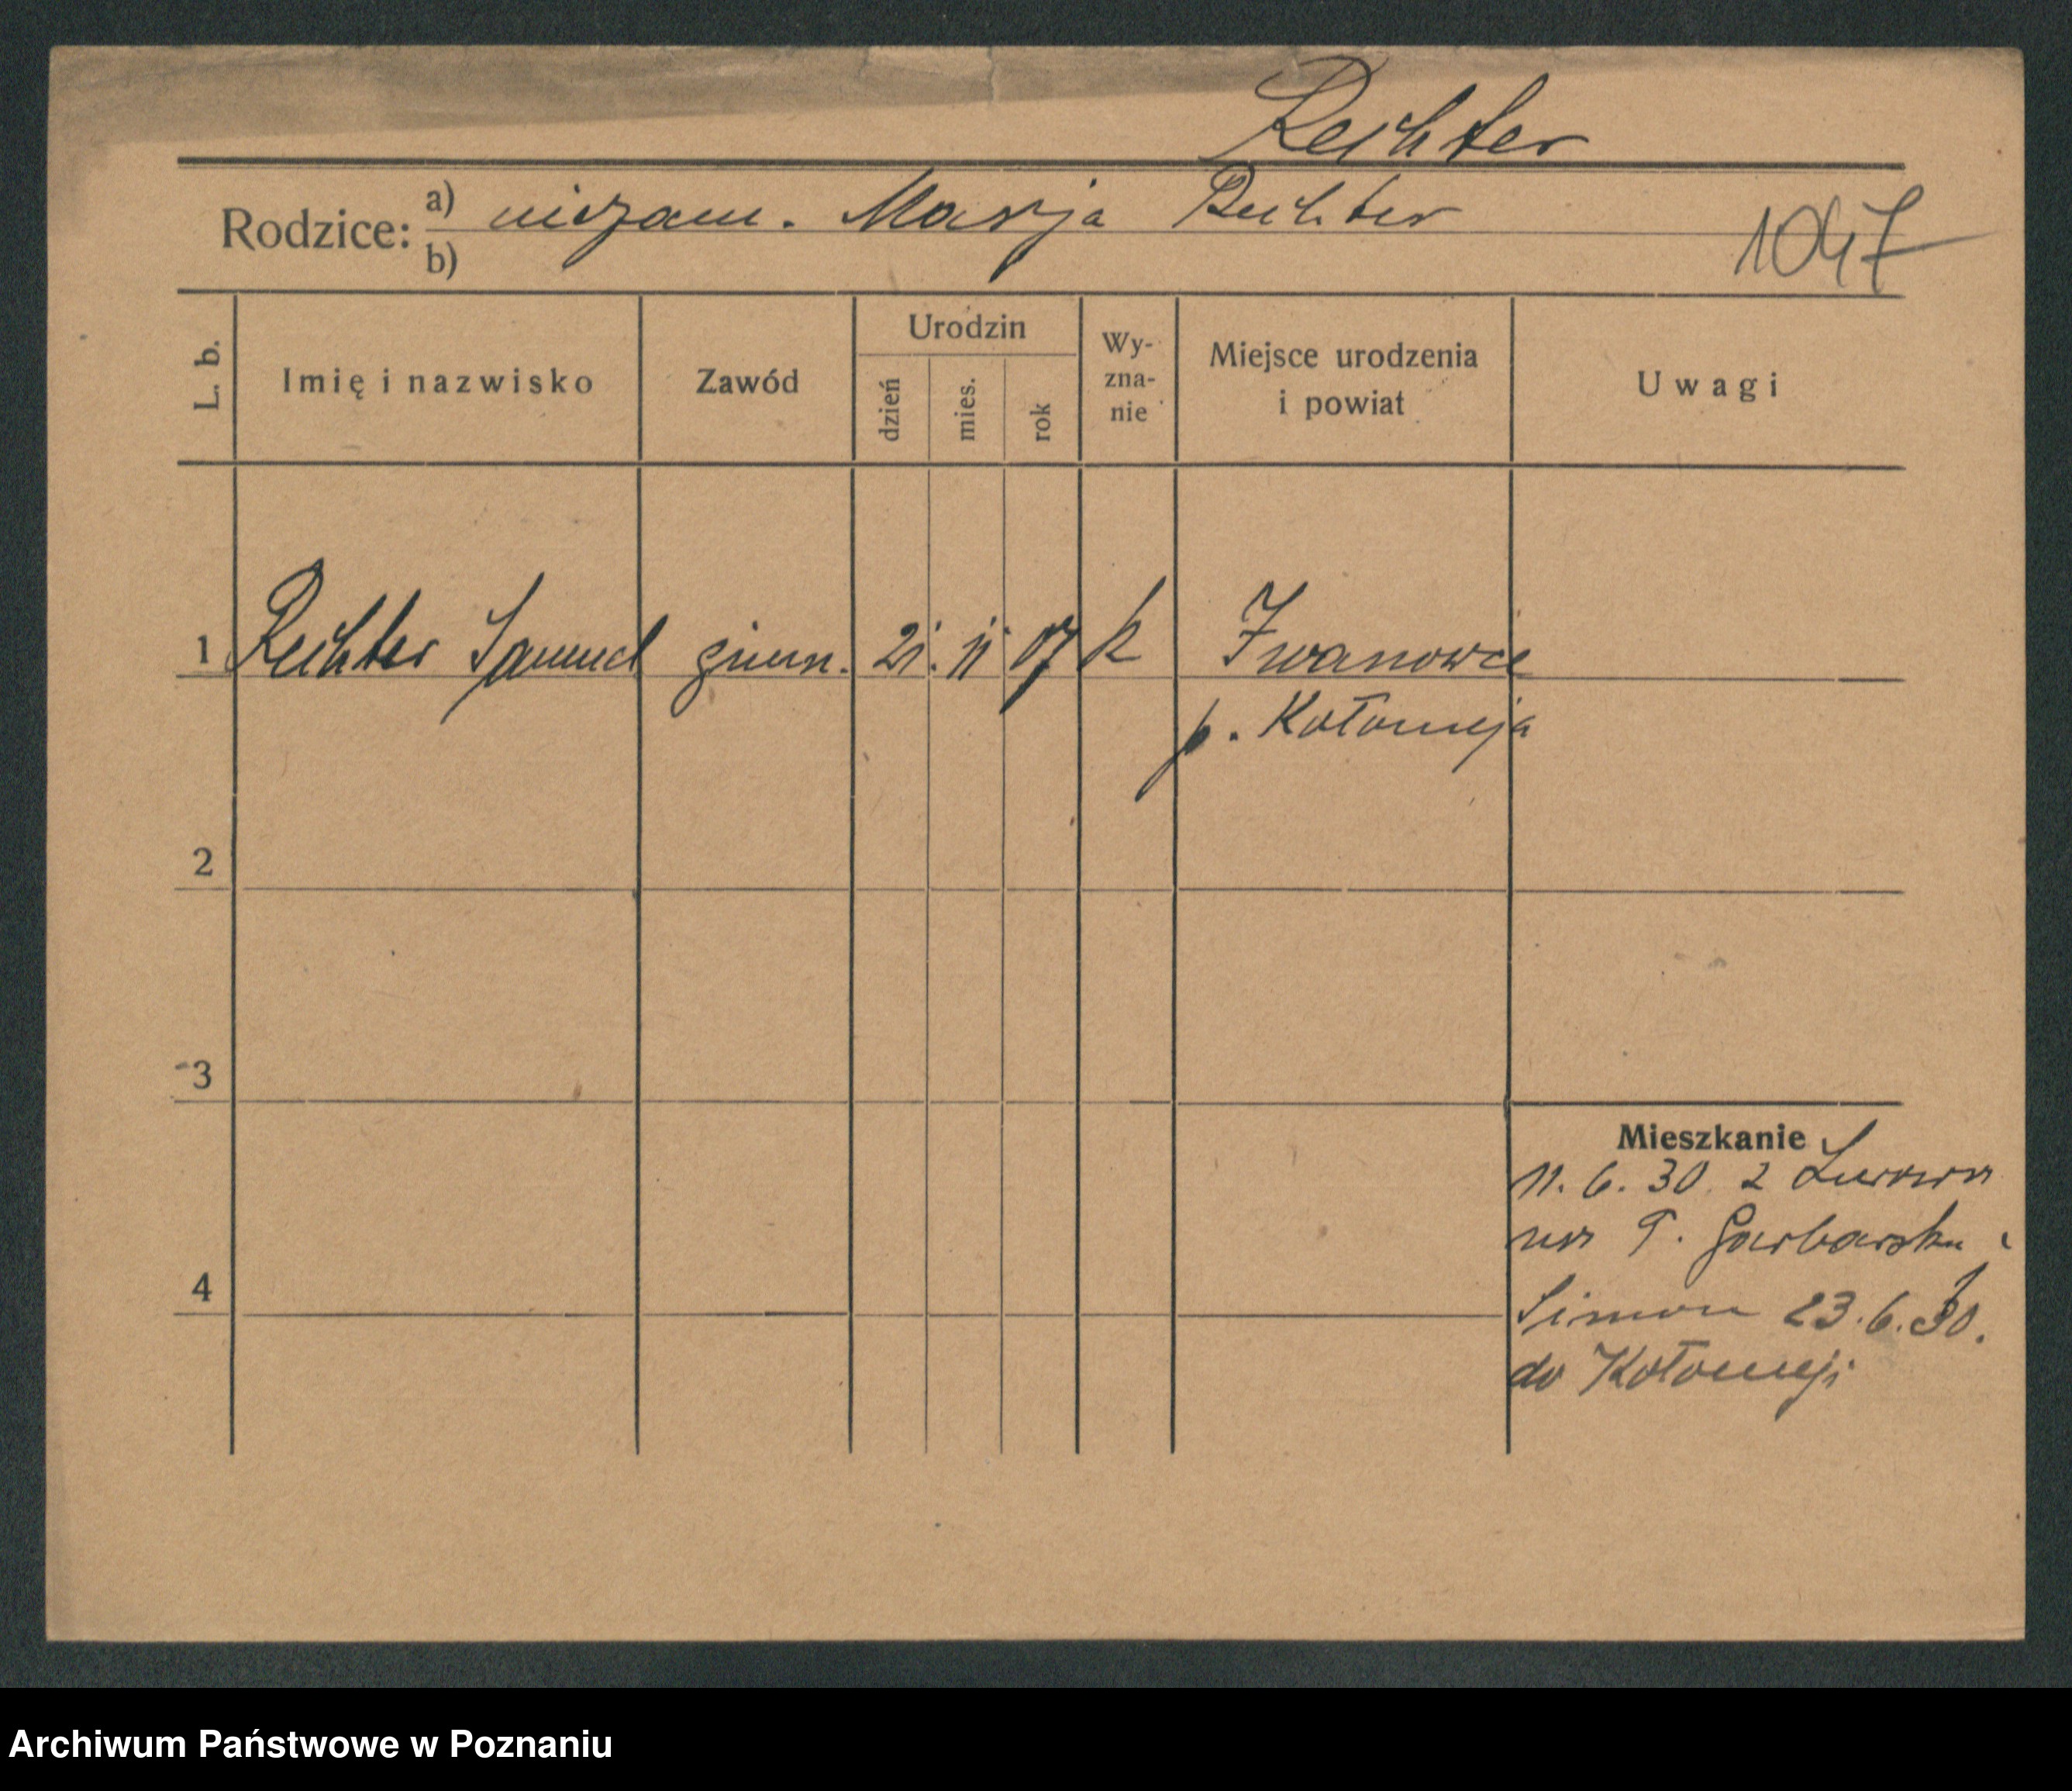 Rechter
Rodzice: a) niezam. Marja Rechter
b)
1047
L. b. Imię i nazwisko Zawód Urodzin dzień mies. rok Wy-zna-nie Miejsce urodzenia i powiat Uwagi
1 Rechter Samuel gimn. 21. 11 07 k Iwanowce
p. Kołomyja
2
3
Mieszkanie
11.6.30. z Lwowa
4
Simon 23.6.30.
do Kołomyji
Archiwum Państwowe w Poznaniu